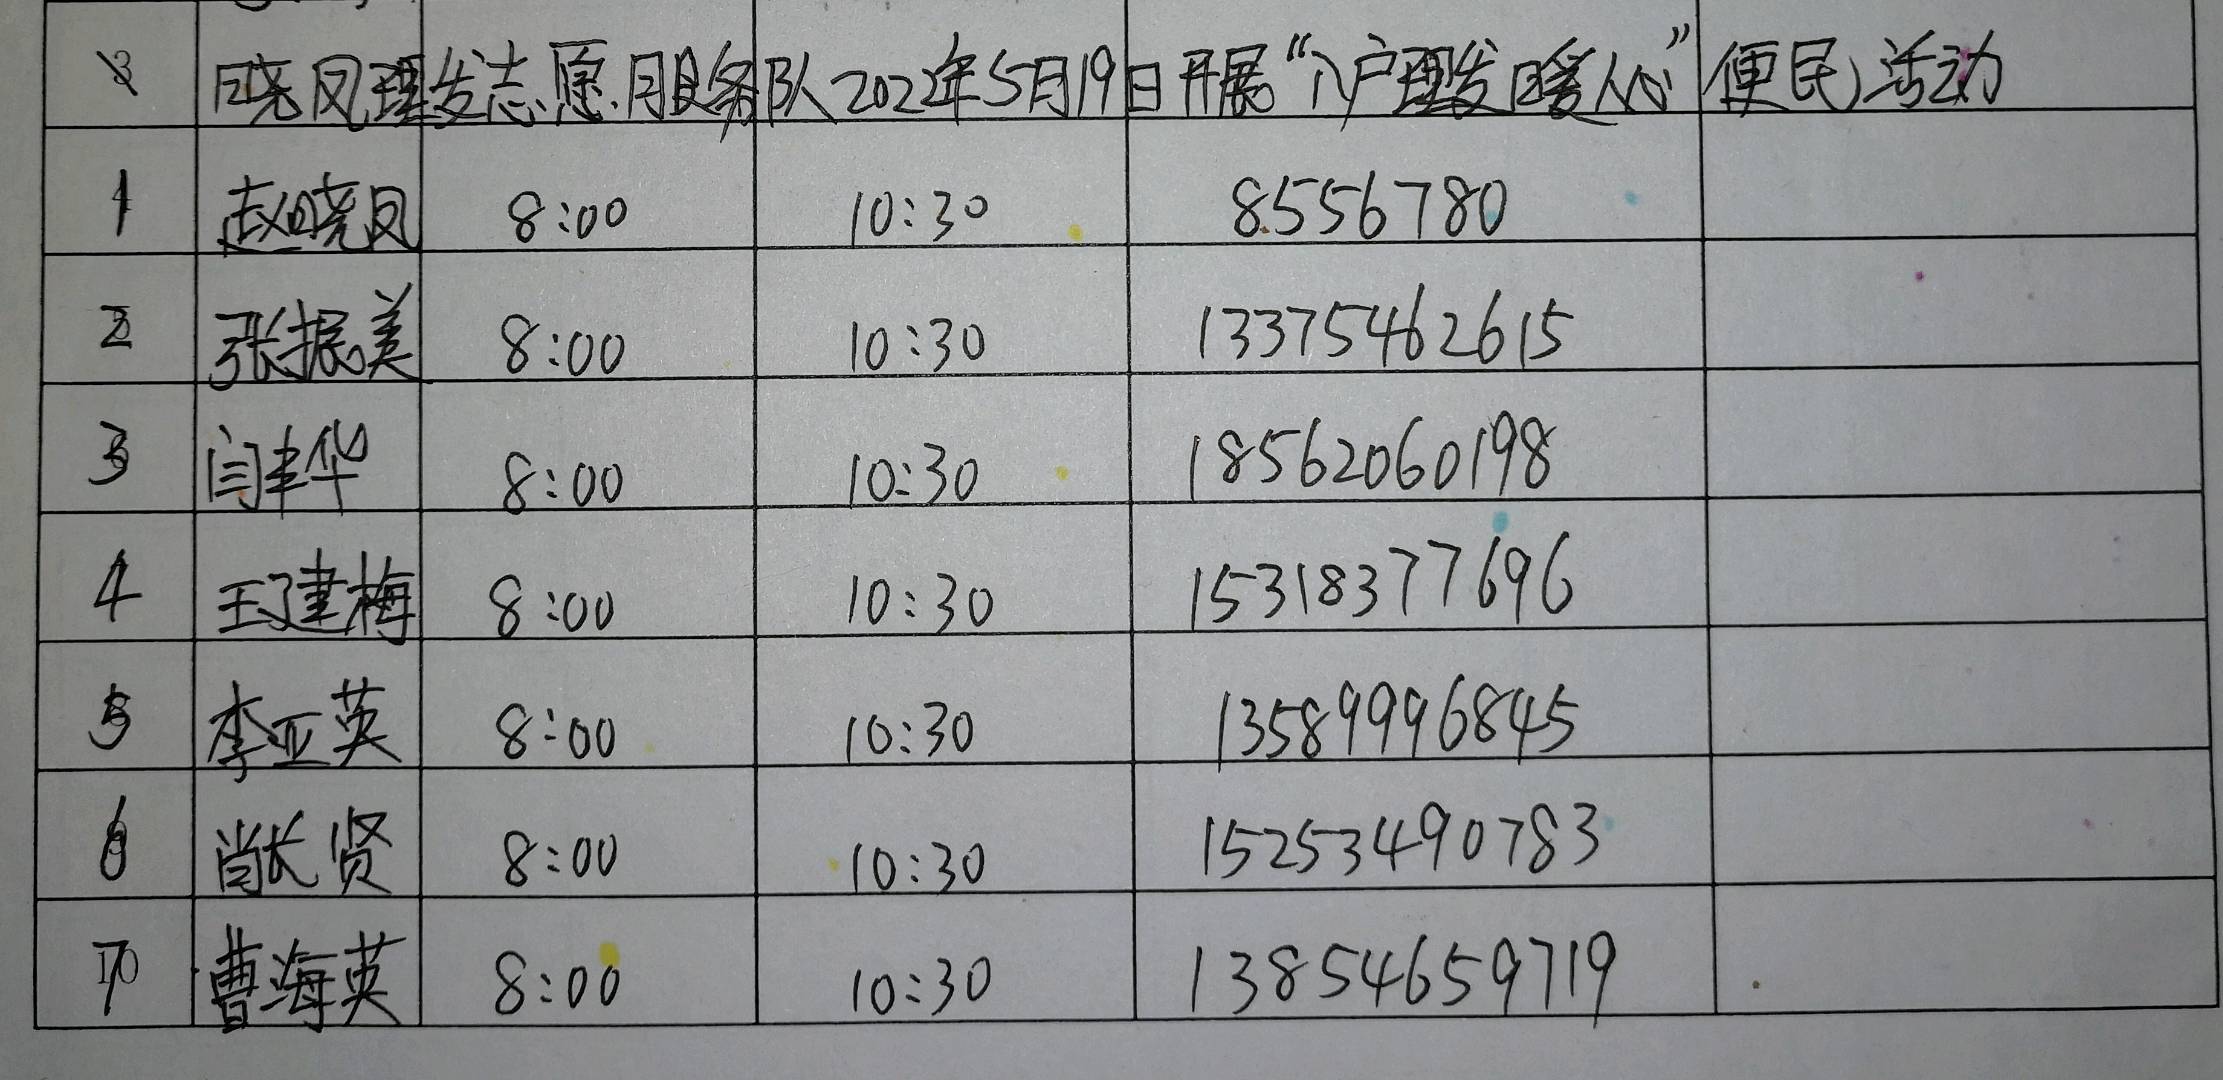 晓凤理发志愿服务队2022年5月19日开展“入户理发暖人心”便民活动
1 赵晓凤 8:00 10:30 8556780
2 张振美 8:00 10:30 13375462615
3 闫丰华 8:00 10:30 18562060198
4 王建梅 8:00 10:30 15318377696
5 李亚英 8:00 10:30 13589996845
6 肖长贤 8:00 10:30 15253490783
7 曹海英 8:00 10:30 13854659719